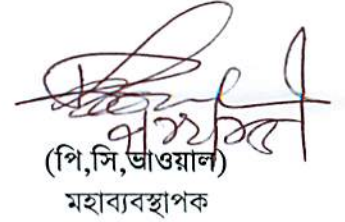 (পি,সি,ভাওয়াল)
মহাব্যবস্থাপক